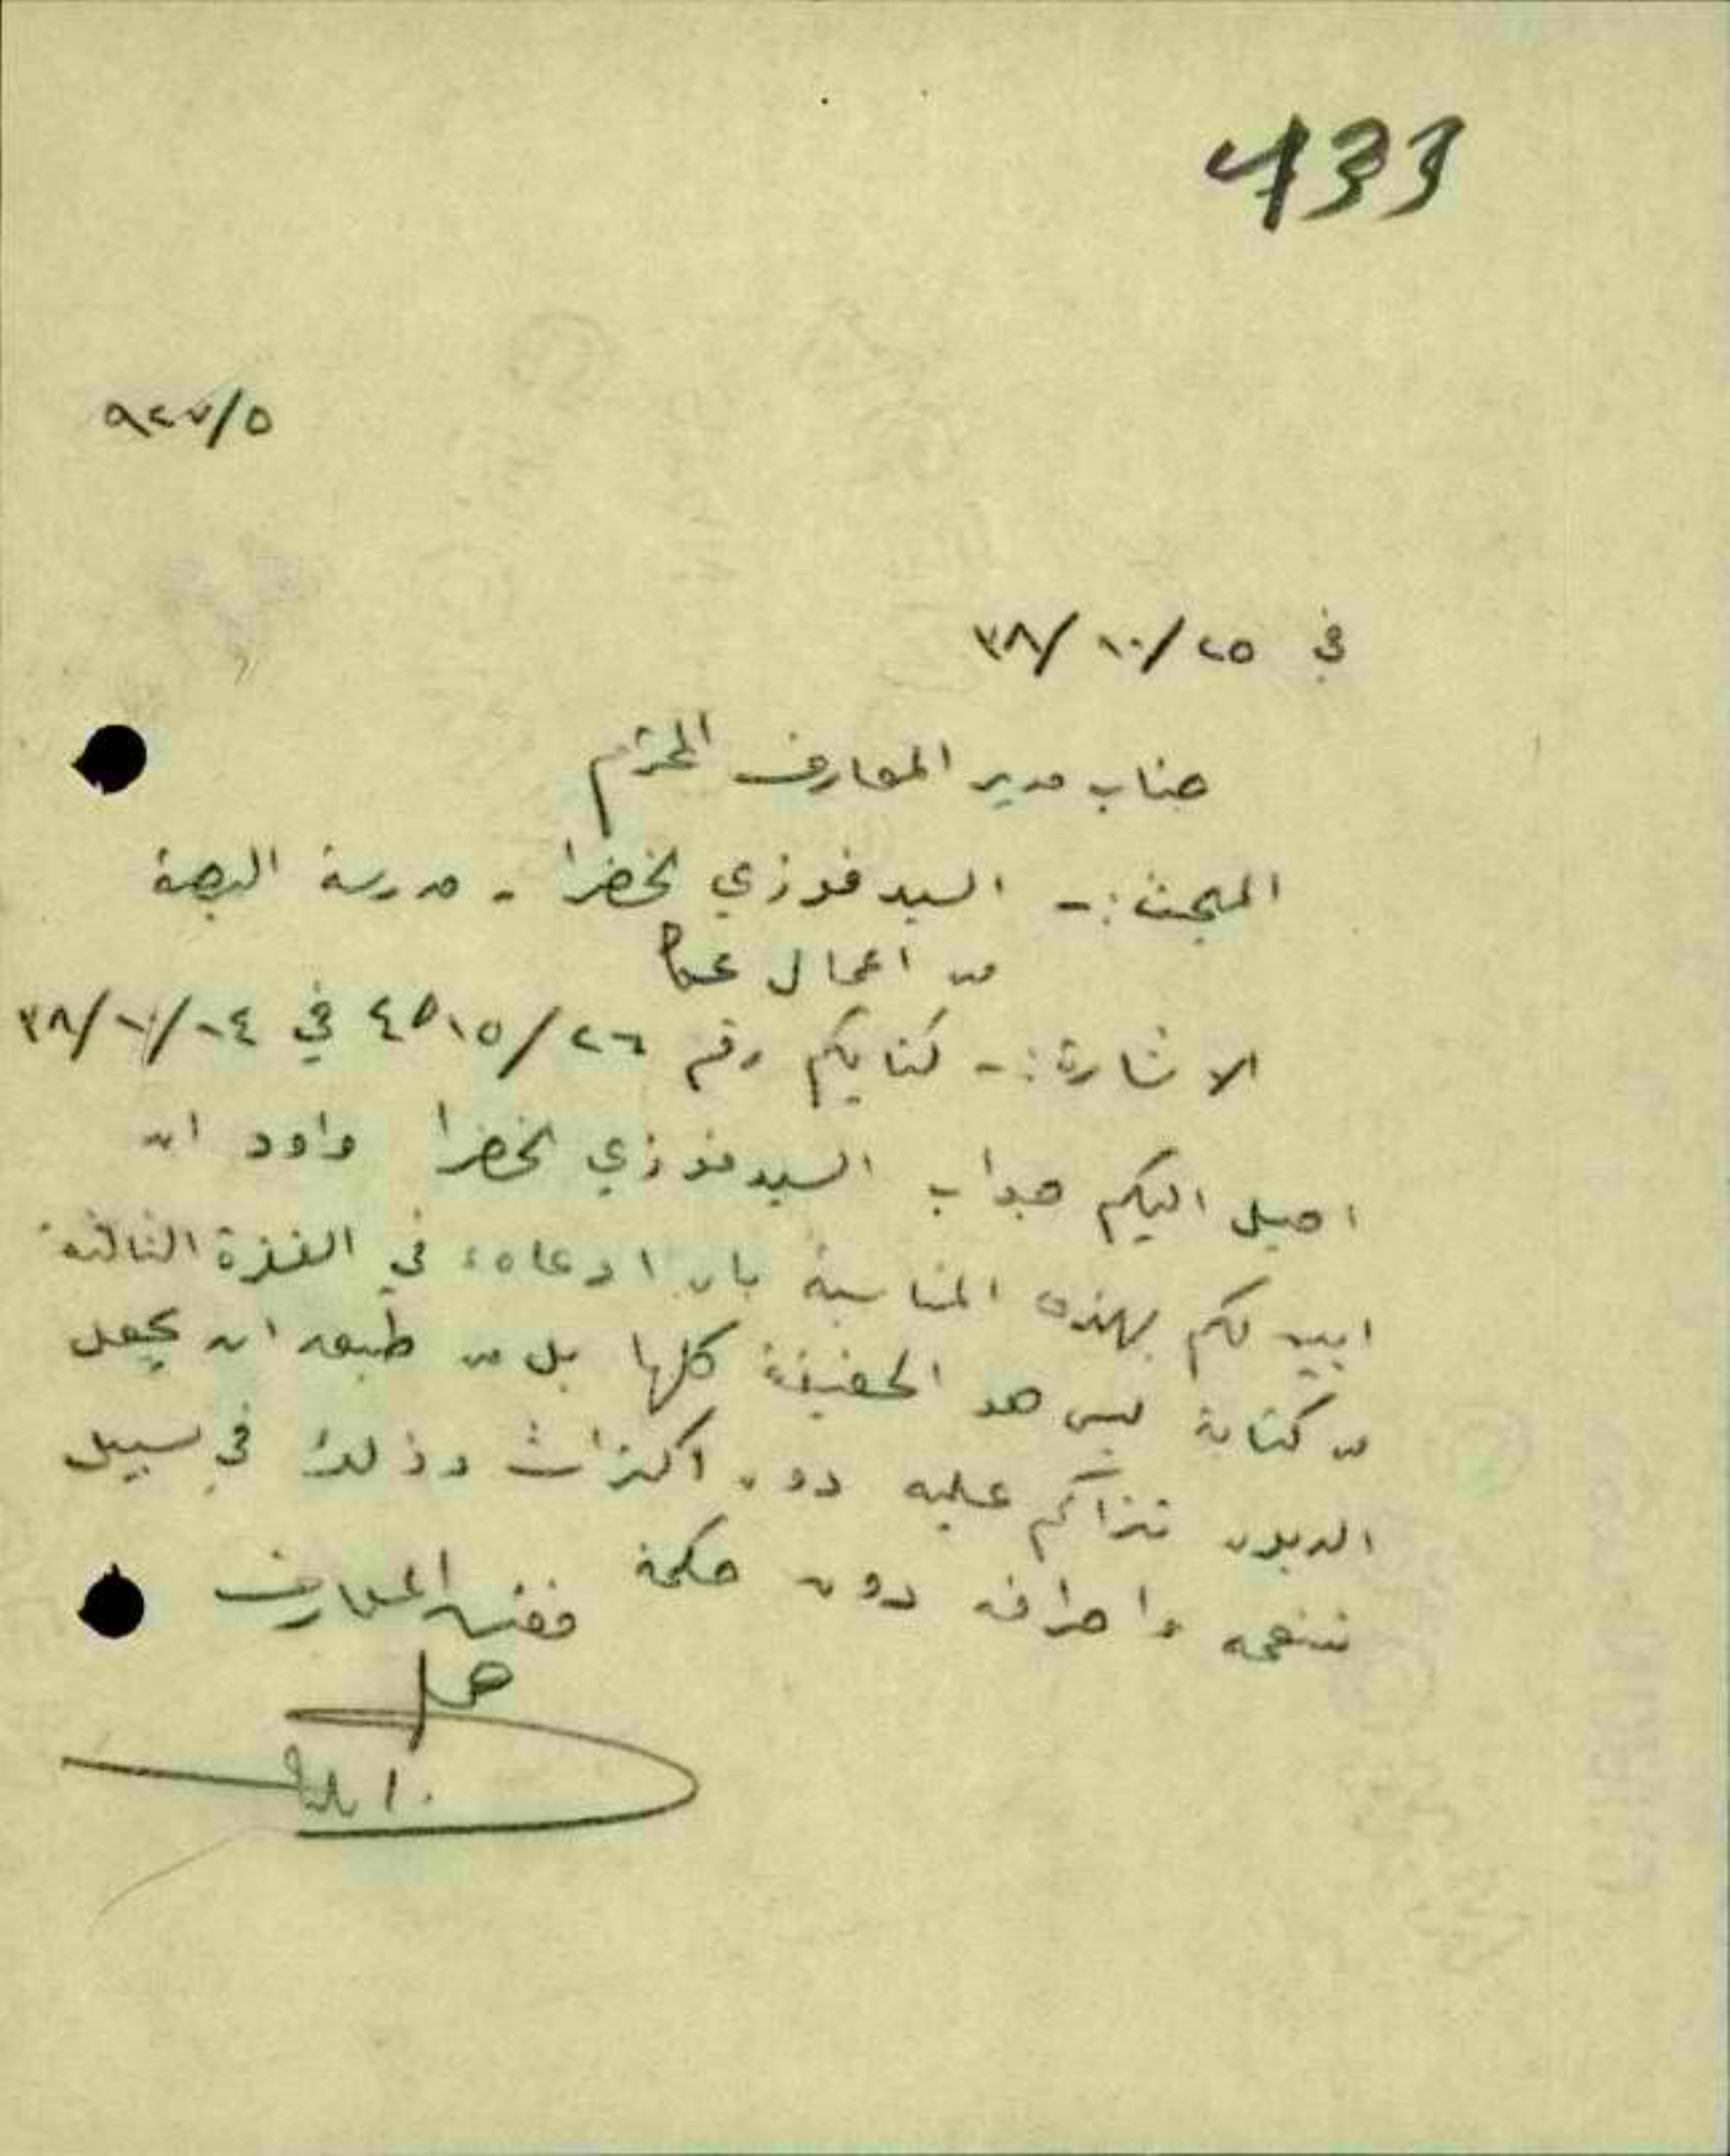 433
٩٢٧/٥
في ٢٥/١٠/٣٨
جناب مدير المعارف المحترم
المبحث :- السيد فوزي الخضرا - مدرسة البصة
من اعمال عكا
الاشارة :- كتابكم رقم ٢٦/٤٥١٥ في ١٤/١٠/٣٨
احيل اليكم جواب السيد فوزي الخضرا واود ان
ابين لكم بهذه المناسبة بان ادعاءه في الفقرة الثالثة
من كتابه ليس هو الحقيقة كلها بل من طبعه ان يجعل
الديون تتراكم عليه دون اكتراث وذلك في سبيل
تنعمه واسرافه دون حكمة
مفتش المعارف